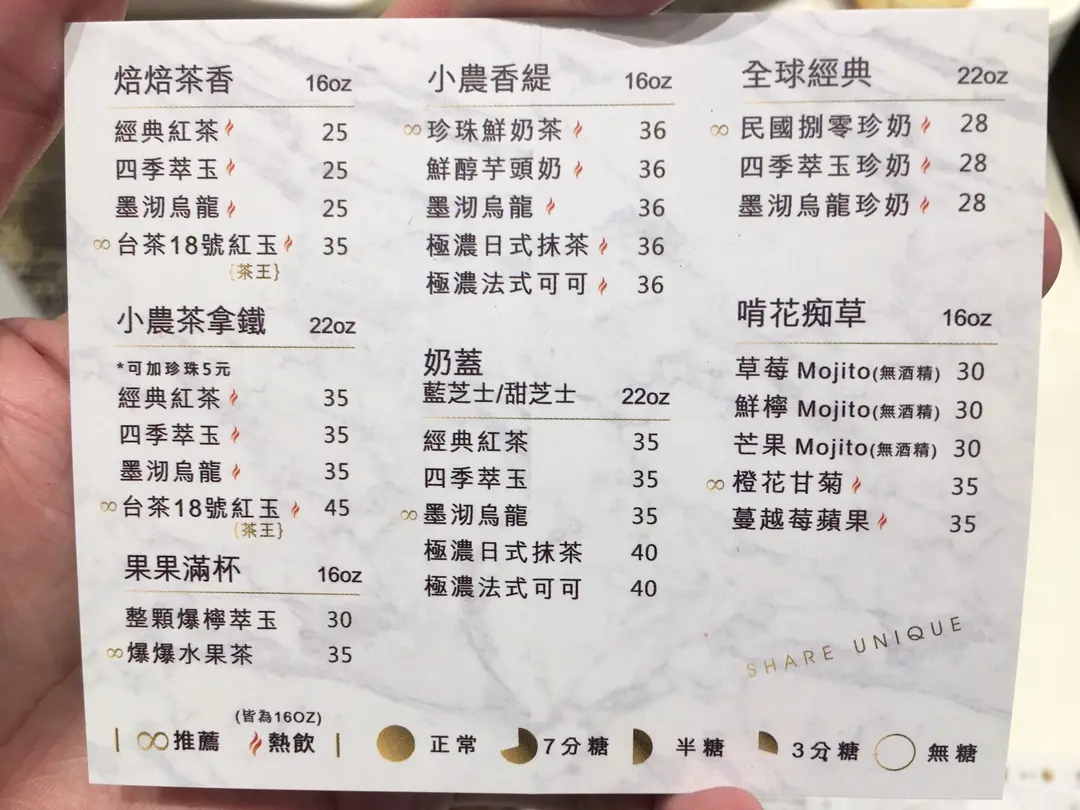 焙焙茶香 16oz
經典紅茶 25
四季萃玉 25
墨沏烏龍 25
∞台茶18號紅玉 35
{茶王}
小農茶拿鐵 22oz
*可加珍珠5元
經典紅茶 35
四季萃玉 35
墨沏烏龍 35
∞台茶18號紅玉 45
{茶王}
果果滿杯 16oz
整顆爆檸萃玉 30
∞爆爆水果茶 35
小農香緹 16oz
∞珍珠鮮奶茶 36
鮮醇芋頭奶 36
墨沏烏龍 36
極濃日式抹茶 36
極濃法式可可 36
奶蓋
藍芝士/甜芝士 22oz
經典紅茶 35
四季萃玉 35
∞墨沏烏龍 35
極濃日式抹茶 40
極濃法式可可 40
全球經典 22oz
∞民國捌零珍奶 28
四季萃玉珍奶 28
墨沏烏龍珍奶 28
啃花痴草 16oz
草莓 Mojito(無酒精) 30
鮮檸 Mojito(無酒精) 30
芒果 Mojito(無酒精) 30
∞橙花甘菊 35
蔓越莓蘋果 35
SHARE UNIQUE
(皆為16OZ)
| ∞推薦 熱飲 | 正常 7分糖 半糖 3分糖 無糖